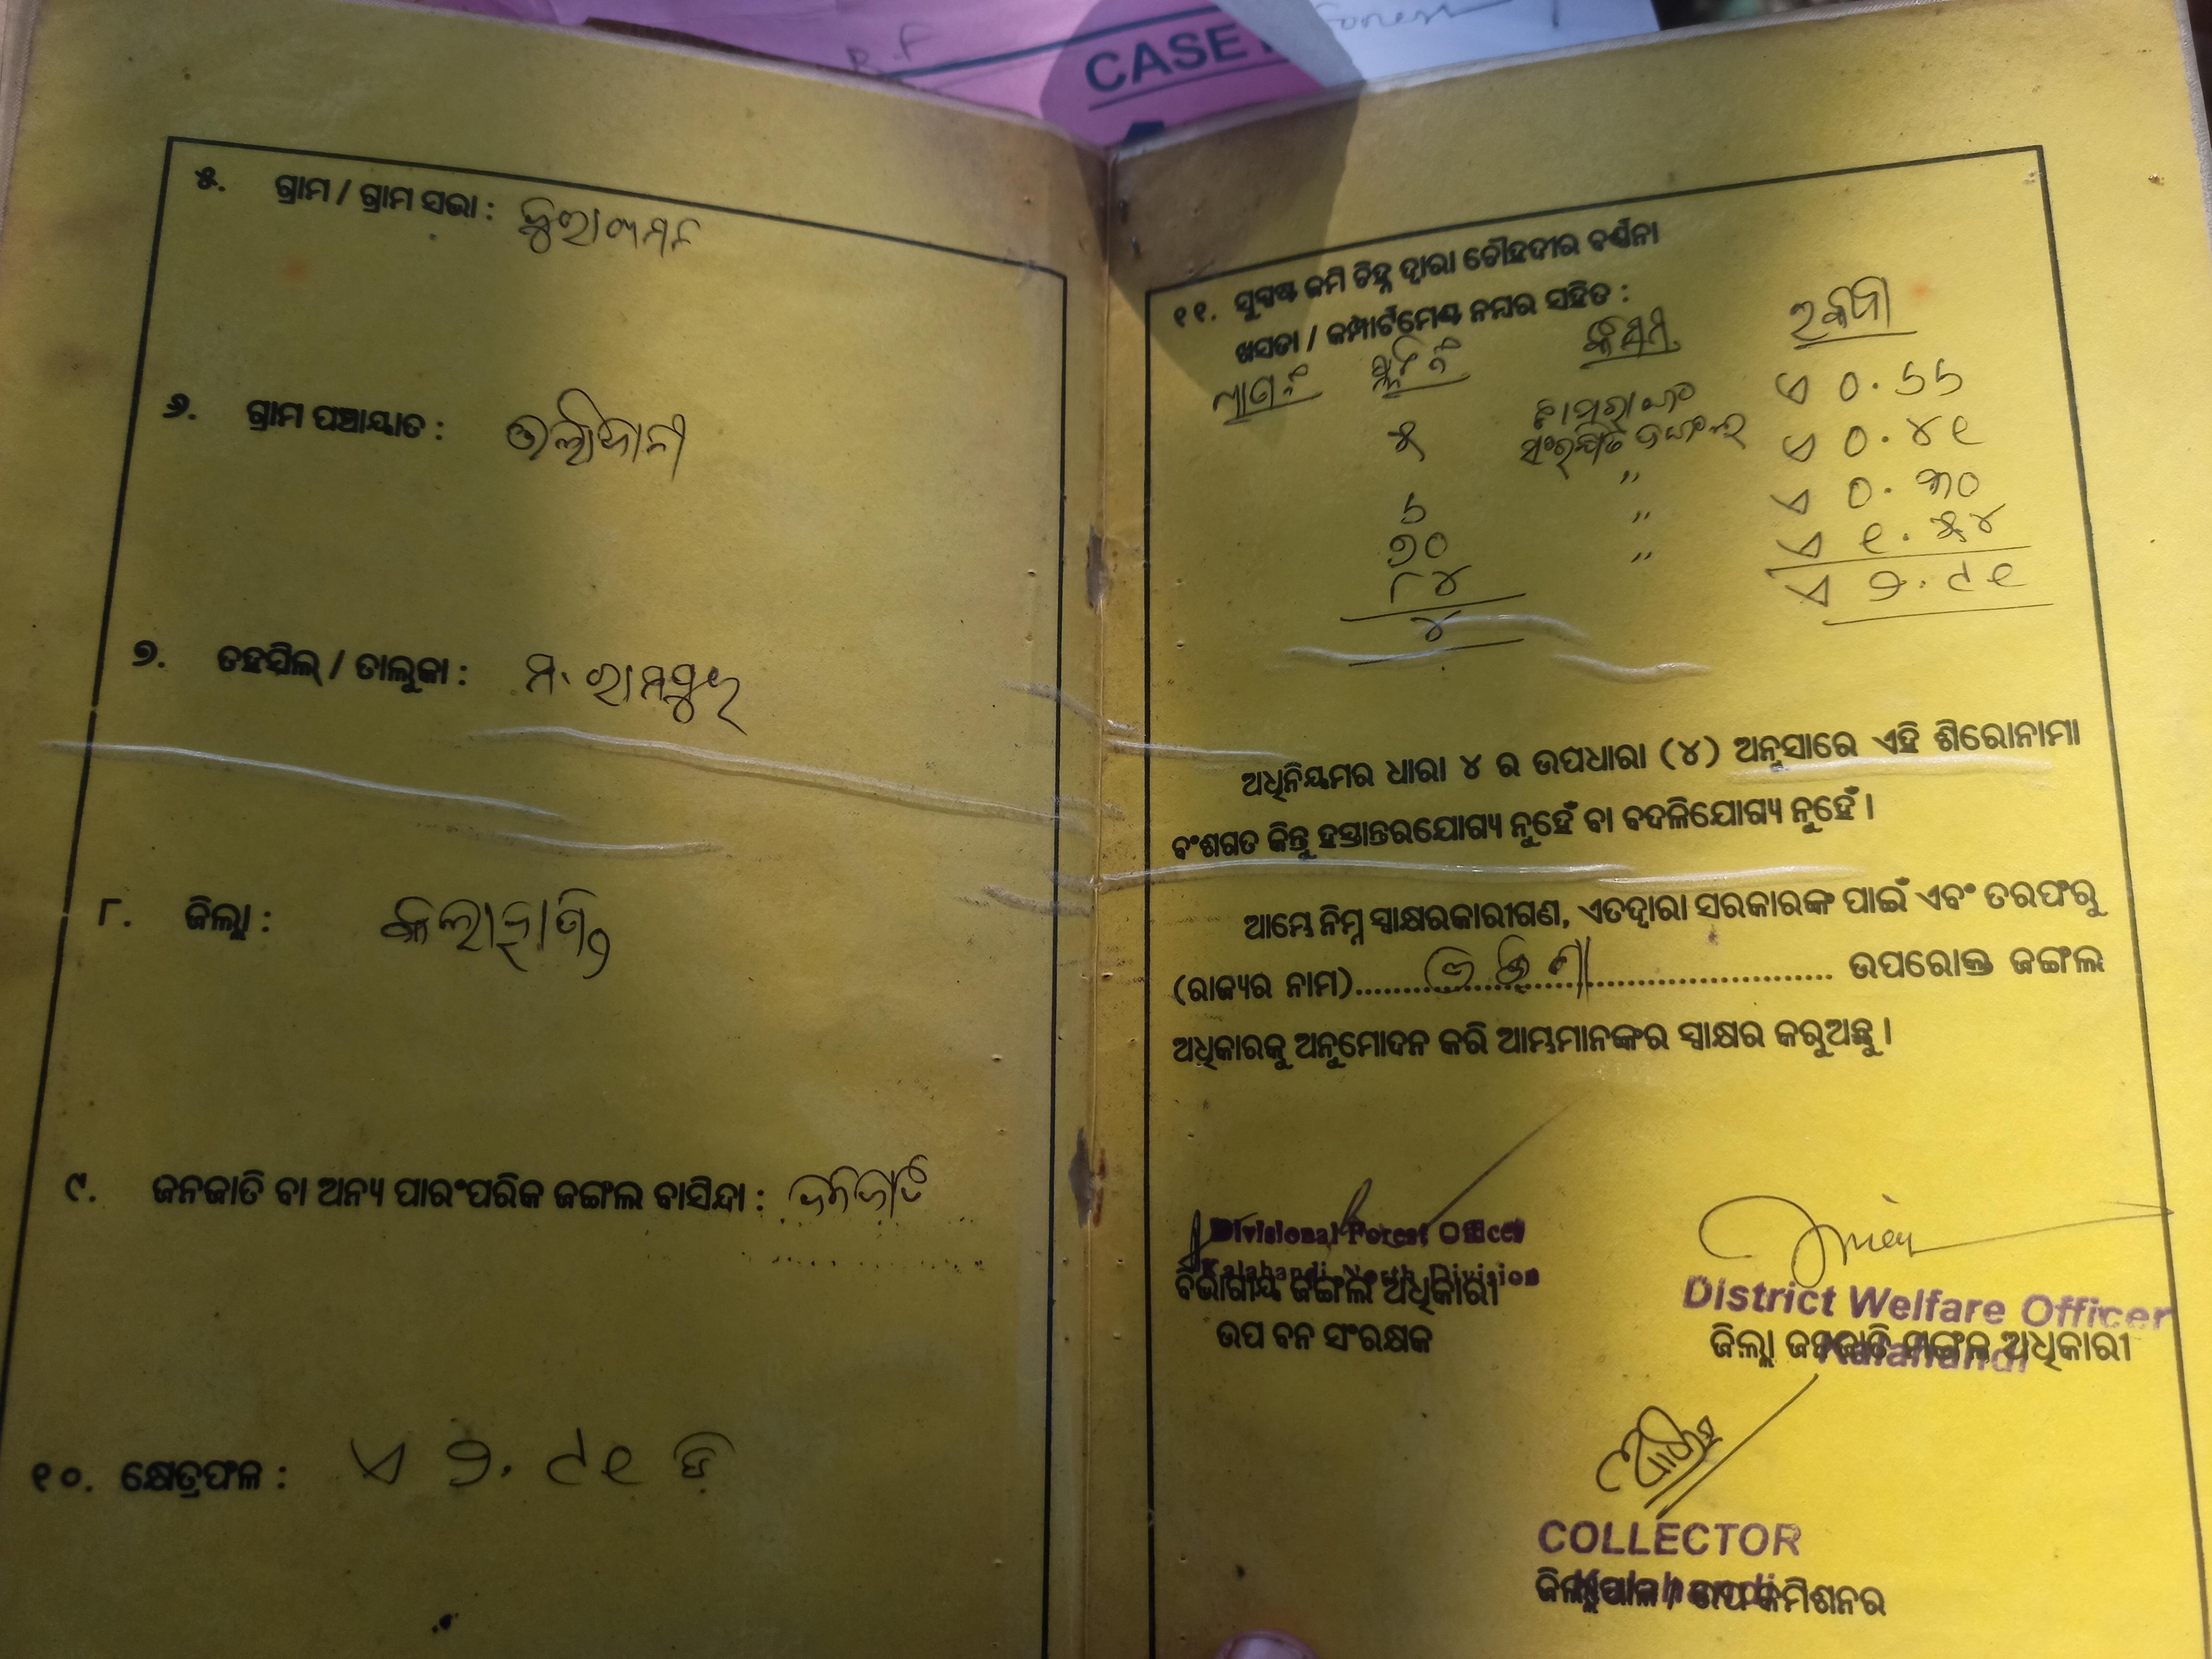 R.F
CASE
୫. ଗ୍ରାମ / ଗ୍ରାମ ସଭା :
୬. ଗ୍ରାମ ପଞ୍ଚାୟାତ :
୭. ତହସିଲ୍ / ତାଲୁକା : ମ. ରାମପୁର
୮. ଜିଲ୍ଲା : କଳାହାଣ୍ଡି
୯. ଜନଜାତି ବା ଅନ୍ୟ ପାରଂପରିକ ଜଙ୍ଗଲ ବାସିନ୍ଦା : ଜନଜାତି
୧୦. କ୍ଷେତ୍ରଫଳ : ଏ ୨.୯୧ ଡି
୧୧. ସୁସ୍ପଷ୍ଟ ଜମି ଚିହ୍ନ ଦ୍ୱାରା ଚୌହଦୀର ବର୍ଣ୍ଣନା
ଖସଡା / କମ୍ପାର୍ଟମେଣ୍ଟ ନମ୍ବର ସହିତ :
ପ୍ଲଟ ନଂ କିସମ ରକବା
୫ ସଂରକ୍ଷିତ ଜଙ୍ଗଲ ଏ ୦.୬୬
୬ " ଏ ୦.୪୧
୭୦ " ଏ ୦.୩୦
୮୪ " ଏ ୧.୫୪
୪ ଏ ୨.୯୧
ଅଧିନିୟମର ଧାରା ୪ ର ଉପଧାରା (୪) ଅନୁସାରେ ଏହି ଶିରୋନାମା
ବଂଶଗତ କିନ୍ତୁ ହସ୍ତାନ୍ତରଯୋଗ୍ୟ ନୁହେଁ ବା ବଦଳିଯୋଗ୍ୟ ନୁହେଁ ।
ଆମ୍ଭେ ନିମ୍ନ ସ୍ୱାକ୍ଷରକାରୀଗଣ, ଏତଦ୍ୱାରା ସରକାରଙ୍କ ପାଇଁ ଏବଂ ତରଫରୁ
(ରାଜ୍ୟର ନାମ)..... ଓଡିଶା ..... ଉପରୋକ୍ତ ଜଙ୍ଗଲ
ଅଧିକାରକୁ ଅନୁମୋଦନ କରି ଆମ୍ଭମାନଙ୍କର ସ୍ୱାକ୍ଷର କରୁଅଛୁ ।
Divisional Forest Officer
Kalahandi North Division
ବିଭାଗୀୟ ଜଙ୍ଗଲ ଅଧିକାରୀ
ଉପ ବନ ସଂରକ୍ଷକ
District Welfare Officer
Kalahandi
ଜିଲ୍ଲା ଜନଜାତି ମଙ୍ଗଳ ଅଧିକାରୀ
COLLECTOR
Kalahandi
ଜିଲ୍ଲାପାଳ / ଉପ କମିଶନର